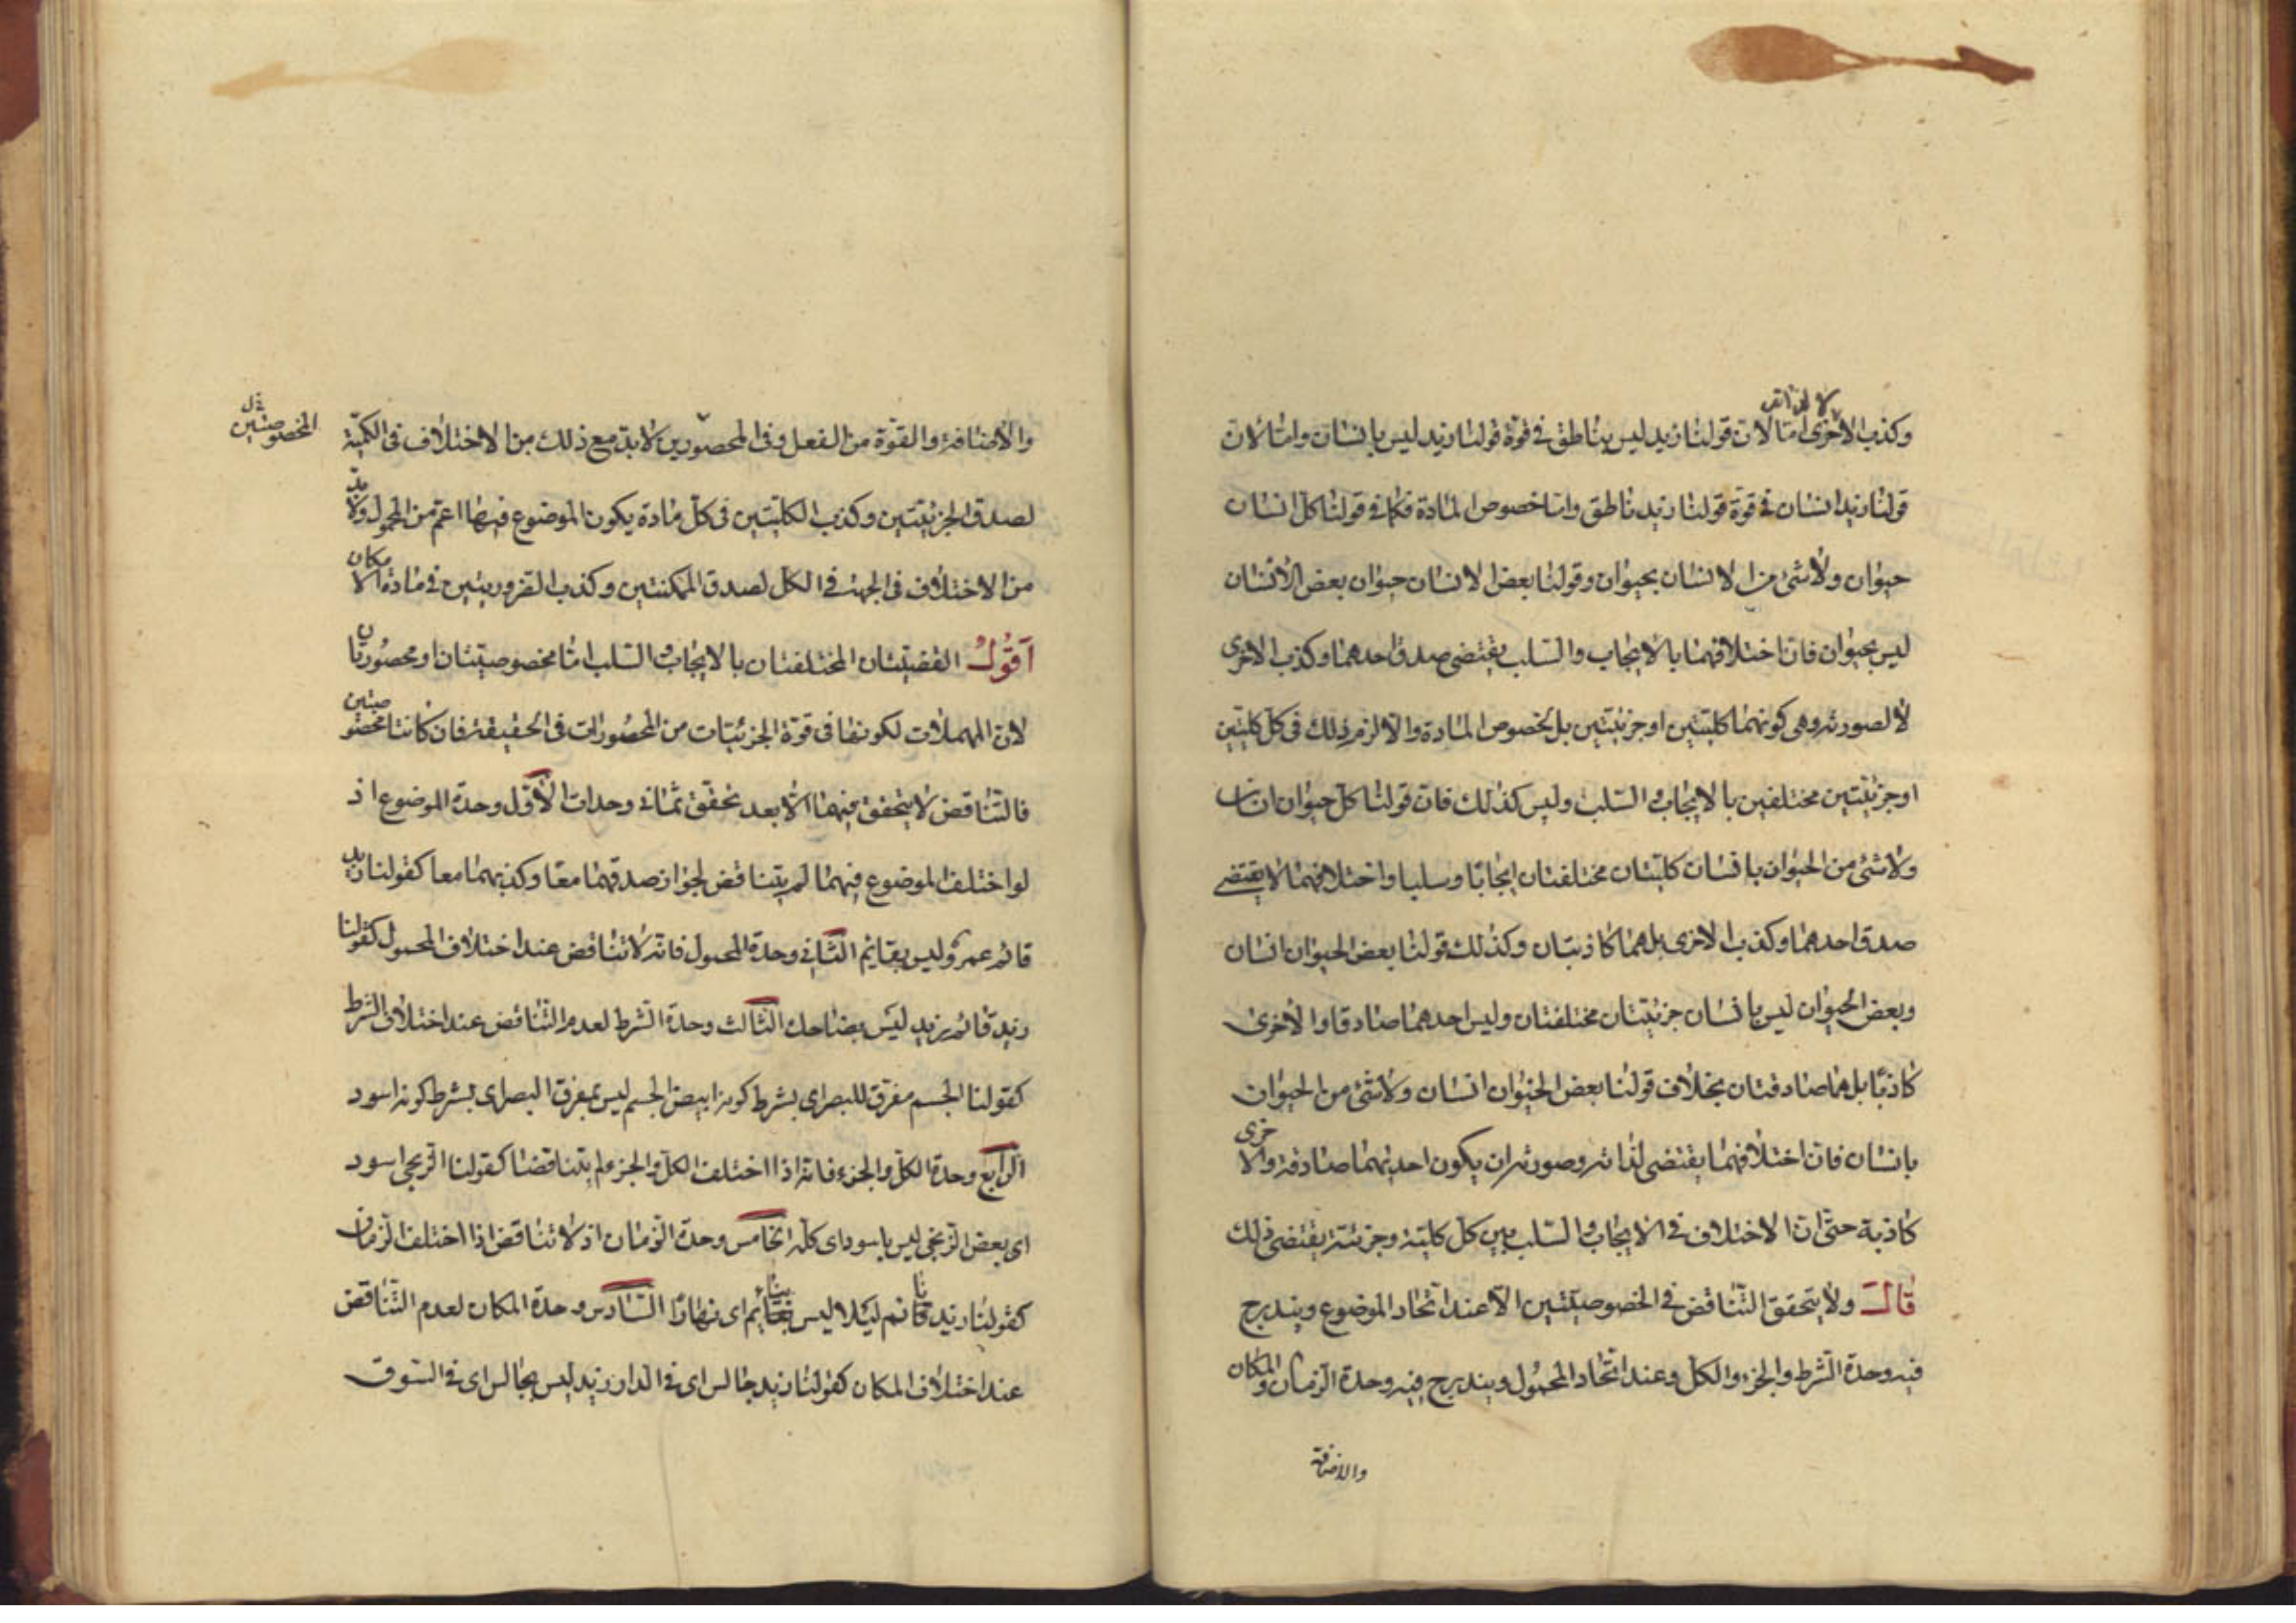 لا لذاته
وكذب الاخرى امّا لانّ قولنا زيد ليس بناطق فى قوّة قولنا زيد ليس بانسان وامّا لانّ
قولنا زيد انسان فى قوّة قولنا زيد ناطق وامّا خصوص المادة فكما فى قولنا كلّ انسان
حيوان ولا شئ من الانسان بحيوان وقولنا بعض الانسان حيوان بعض الانسان
ليس بحيوان فانّ اختلافهما بالايجاب والسّلب يقتضى صدق احدهما وكذب الاخرى
لا لصورته وهى كونهما كليّتين او جزئيّتين بل بخصوص المادة والّا لزم ذلك فى كلّ كليّتين
او جزئيّتين مختلفين بالايجاب والسّلب وليس كذلك فانّ قولنا كلّ حيوان انسان
ولا شئ من الحيوان بانسان كليّتان مختلفتان ايجابًا وسلبا واختلافهما لا يقتضى
صدق احدهما وكذب الاخرى بل هما كاذبتان وكذلك قولنا بعض الحيوان انسان
وبعض الحيوان ليس بانسان جزئيّتان مختلفتان وليس احدهما صادقا والاخرى
كاذبًا بل هما صادقتان بخلاف قولنا بعض الحيوان انسان ولا شئ من الحيوان
بانسان فانّ اختلافهما يقتضى لذاته وصورته ان يكون احديهما صادقة والاخرى
كاذبة حتّى انّ الاختلاف فى الايجاب والسّلب بين كلّ كليّة وجزئيّة يقتضى ذلك
قال ولا يتحقق التّناقض فى الخصوصيّتين الّا عند اتّحاد الموضوع ويندرج
فيه وحدة الشّرط والجزء والكلّ وعند اتّحاد المحمول ويندرج فيه وحدة الزّمان والمكان
والاضافة
والاضافة والقوّة من الفعل وفى المحصورين لا بدّ مع ذلك من الاختلاف فى الكميّة
المخصوصتين
لصدق الجزئيّتين وكذب الكليّتين فى كلّ مادة يكون الموضوع فيها اعمّ من المحمول ولا بدّ
من الاختلاف فى الجهة فى الكل لصدق الممكنتين وكذب الضّروريتين فى مادة الامكان
اقول القضيّتان المختلفتان بالايجاب والسّلب امّا مخصوصيّتان او محصورتان
لانّ المهملات لكونها فى قوّة الجزئيّات من المحصورات فى الحقيقة فان كانتا مخصوصيتين
فالتّناقض لا يتحقق فيهما الّا بعد تحقق ثمانى وحدات الاوّل وحدة الموضوع اذ
لو اختلف الموضوع فيهما لم يتناقض لجواز صدقهما معًا وكذبهما معا كقولنا زيد
قائم عمرو ليس بقائم الثّانى وحدة المحمول فانّه لا تناقض عند اختلاف المحمول كقولنا
زيد قائم زيد ليس بضاحك الثّالث وحدة الشرط لعدم التّناقض عند اختلاف الشرط
كقولنا الجسم مفرّق للبصر اى بشرط كونه ابيض الجسم ليس بمفرّق البصر اى بشرط كونه اسود
الرّابع وحدة الكلّ والجزء فانّه اذا اختلف الكلّ والجزء لم يتناقضا كقولنا الزّنجى اسود
اى بعض الزّنجى ليس باسود اى كلّه الخامس وحدة الزّمان اذ لا تناقض اذا اختلف الزّمان
كقولنا زيد قائم ليلا ليس بقائم اى نهارًا السّادس وحدة المكان لعدم التّناقض
عند اختلاف المكان كقولنا زيد جالس اى فى الدار زيد ليس بجالس اى فى السّوق